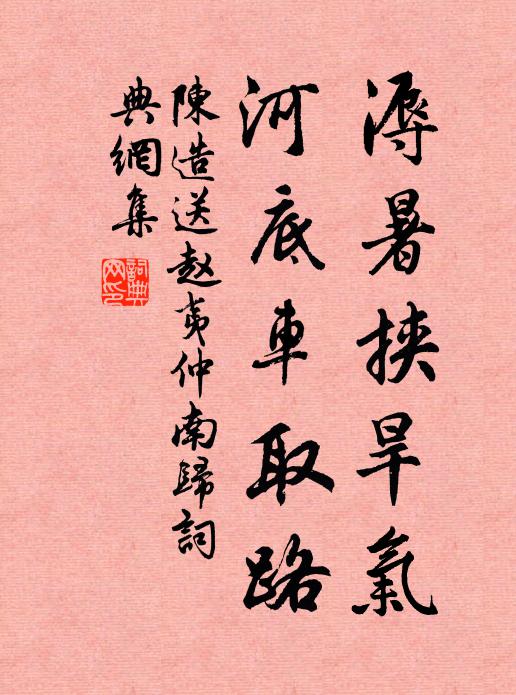 溽暑挾旱氣
河底車取路
陳造送赵夷仲南歸詞
典網集
詞典网印